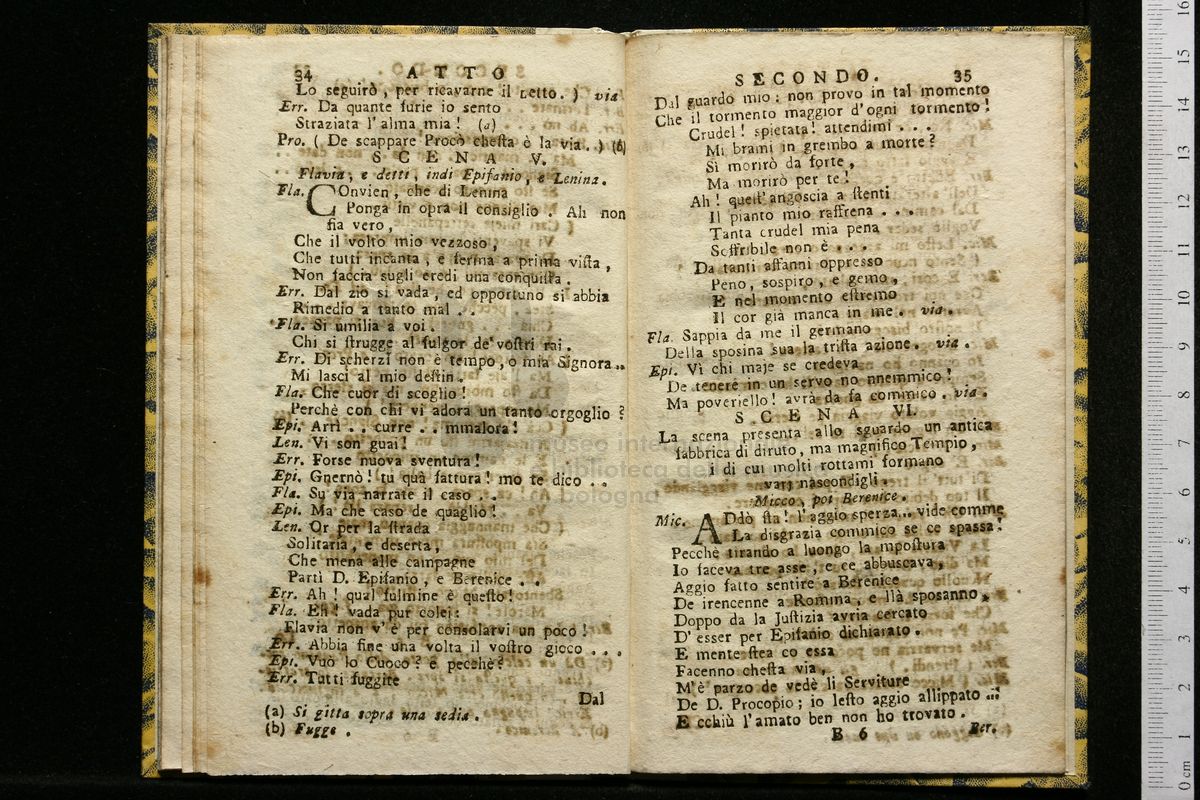 34 ATTO
Lo seguirò, per ricavarne il netto. ) via
Err. Da quante furie io sento
Straziata l'alma mia! (a)
Pro. ( De scappare Procò chesta è la via. ) (b)
SCENA V.
Flavia, e detti, indi Epifanio, e Lenina.
Fla. COnvien, che di Lenina
Ponga in opra il consiglio. Ah non
fia vero,
Che il volto mio vezzoso,
Che tutti incanta, e ferma a prima vista,
Non faccia sugli eredi una conquista.
Err. Dal zio si vada, ed opportuno si abbia
Rimedio a tanto mal . .
Fla. Si umilia a voi.
Chi si strugge al fulgor de' vostri rai.
Err. Di scherzi non è tempo, o mia Signora..
Mi lasci al mio destin.
Fla. Che cuor di scoglio!
Perchè con chi vi adora un tanto orgoglio?
Epi. Arrì . . curre . . mmalora!
Len. Vi son guai!
Err. Forse nuova sventura!
Epi. Gnernò! tu quà fattura! mo te dico . .
Fla. Su via narrate il caso . .
Epi. Ma che caso de quaglio!
Len. Or per la strada
Solitaria, e deserta,
Che mena alle campagne
Partì D. Epifanio, e Berenice . .
Err. Ah! qual fulmine è questo!
Fla. Eh! vada pur colei:
Flavia non v'è per consolarvi un poco!
Err. Abbia fine una volta il vostro gioco . . .
Epi. Vuò lo Cuoco? e pecchè?
Err. Tutti fuggite
Dal
(a) Si gitta sopra una sedia.
(b) Fugge.
SECONDO. 35
Dal guardo mio: non provo in tal momento
Che il tormento maggior d'ogni tormento!
Crudel! spietata! attendimi . . .
Mi brami in grembo a morte?
Sì morirò da forte,
Ma morirò per te!
Ah! quest'angoscia a stenti
Il pianto mio raffrena . . .
Tanta crudel mia pena
Soffribile non è . . .
Da tanti affanni oppresso
Peno, sospiro, e gemo,
E nel momento estremo
Il cor già manca in me. via.
Fla. Sappia da me il germano
Della sposina sua la trista azione. via.
Epi. Vì chi maje se credeva
De tenere in un servo no nnemmico!
Ma poveriello! avrà da fa commico. via.
SCENA VI.
La scena presenta allo sguardo un antica
fabbrica di diruto, ma magnifico Tempio,
i di cui molti rottami formano
varj nascondigli.
Micco, poi Berenice.
Mic. ADdò sta! l'aggio sperza... vide comme
La disgrazia commico se ce spassa!
Pecchè tirando a luongo la mpostura
Io faceva tre asse, e ce abbuscava,
Aggio fatto sentire a Berenice
De irencenne a Romma, e llà sposanno,
Doppo da la Justizia avria cercato
D'esser per Epifanio dichiarato.
E mente stea co essa
Facenno chesta via,
M'è parzo de vedè li Serviture
De D. Procopio; io lesto aggio allippato ...
E cchiù l'amato ben non ho trovato.
B 6 Ber.
museo
biblioteca de
bologna